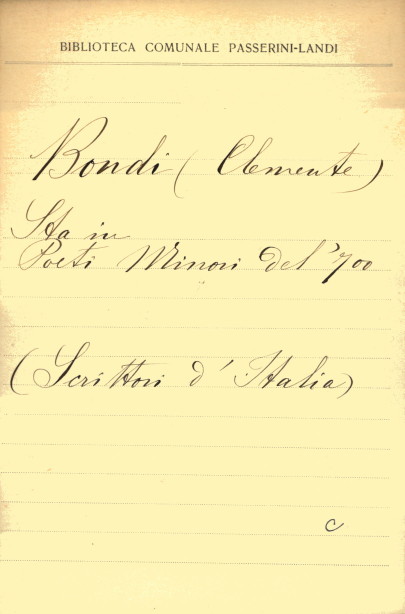 BIBLIOTECA COMUNALE PASSERINI-LANDI
Bondi (Clemente)
Sta in
Poeti Minori del '700
(Scrittori d'Italia)
c